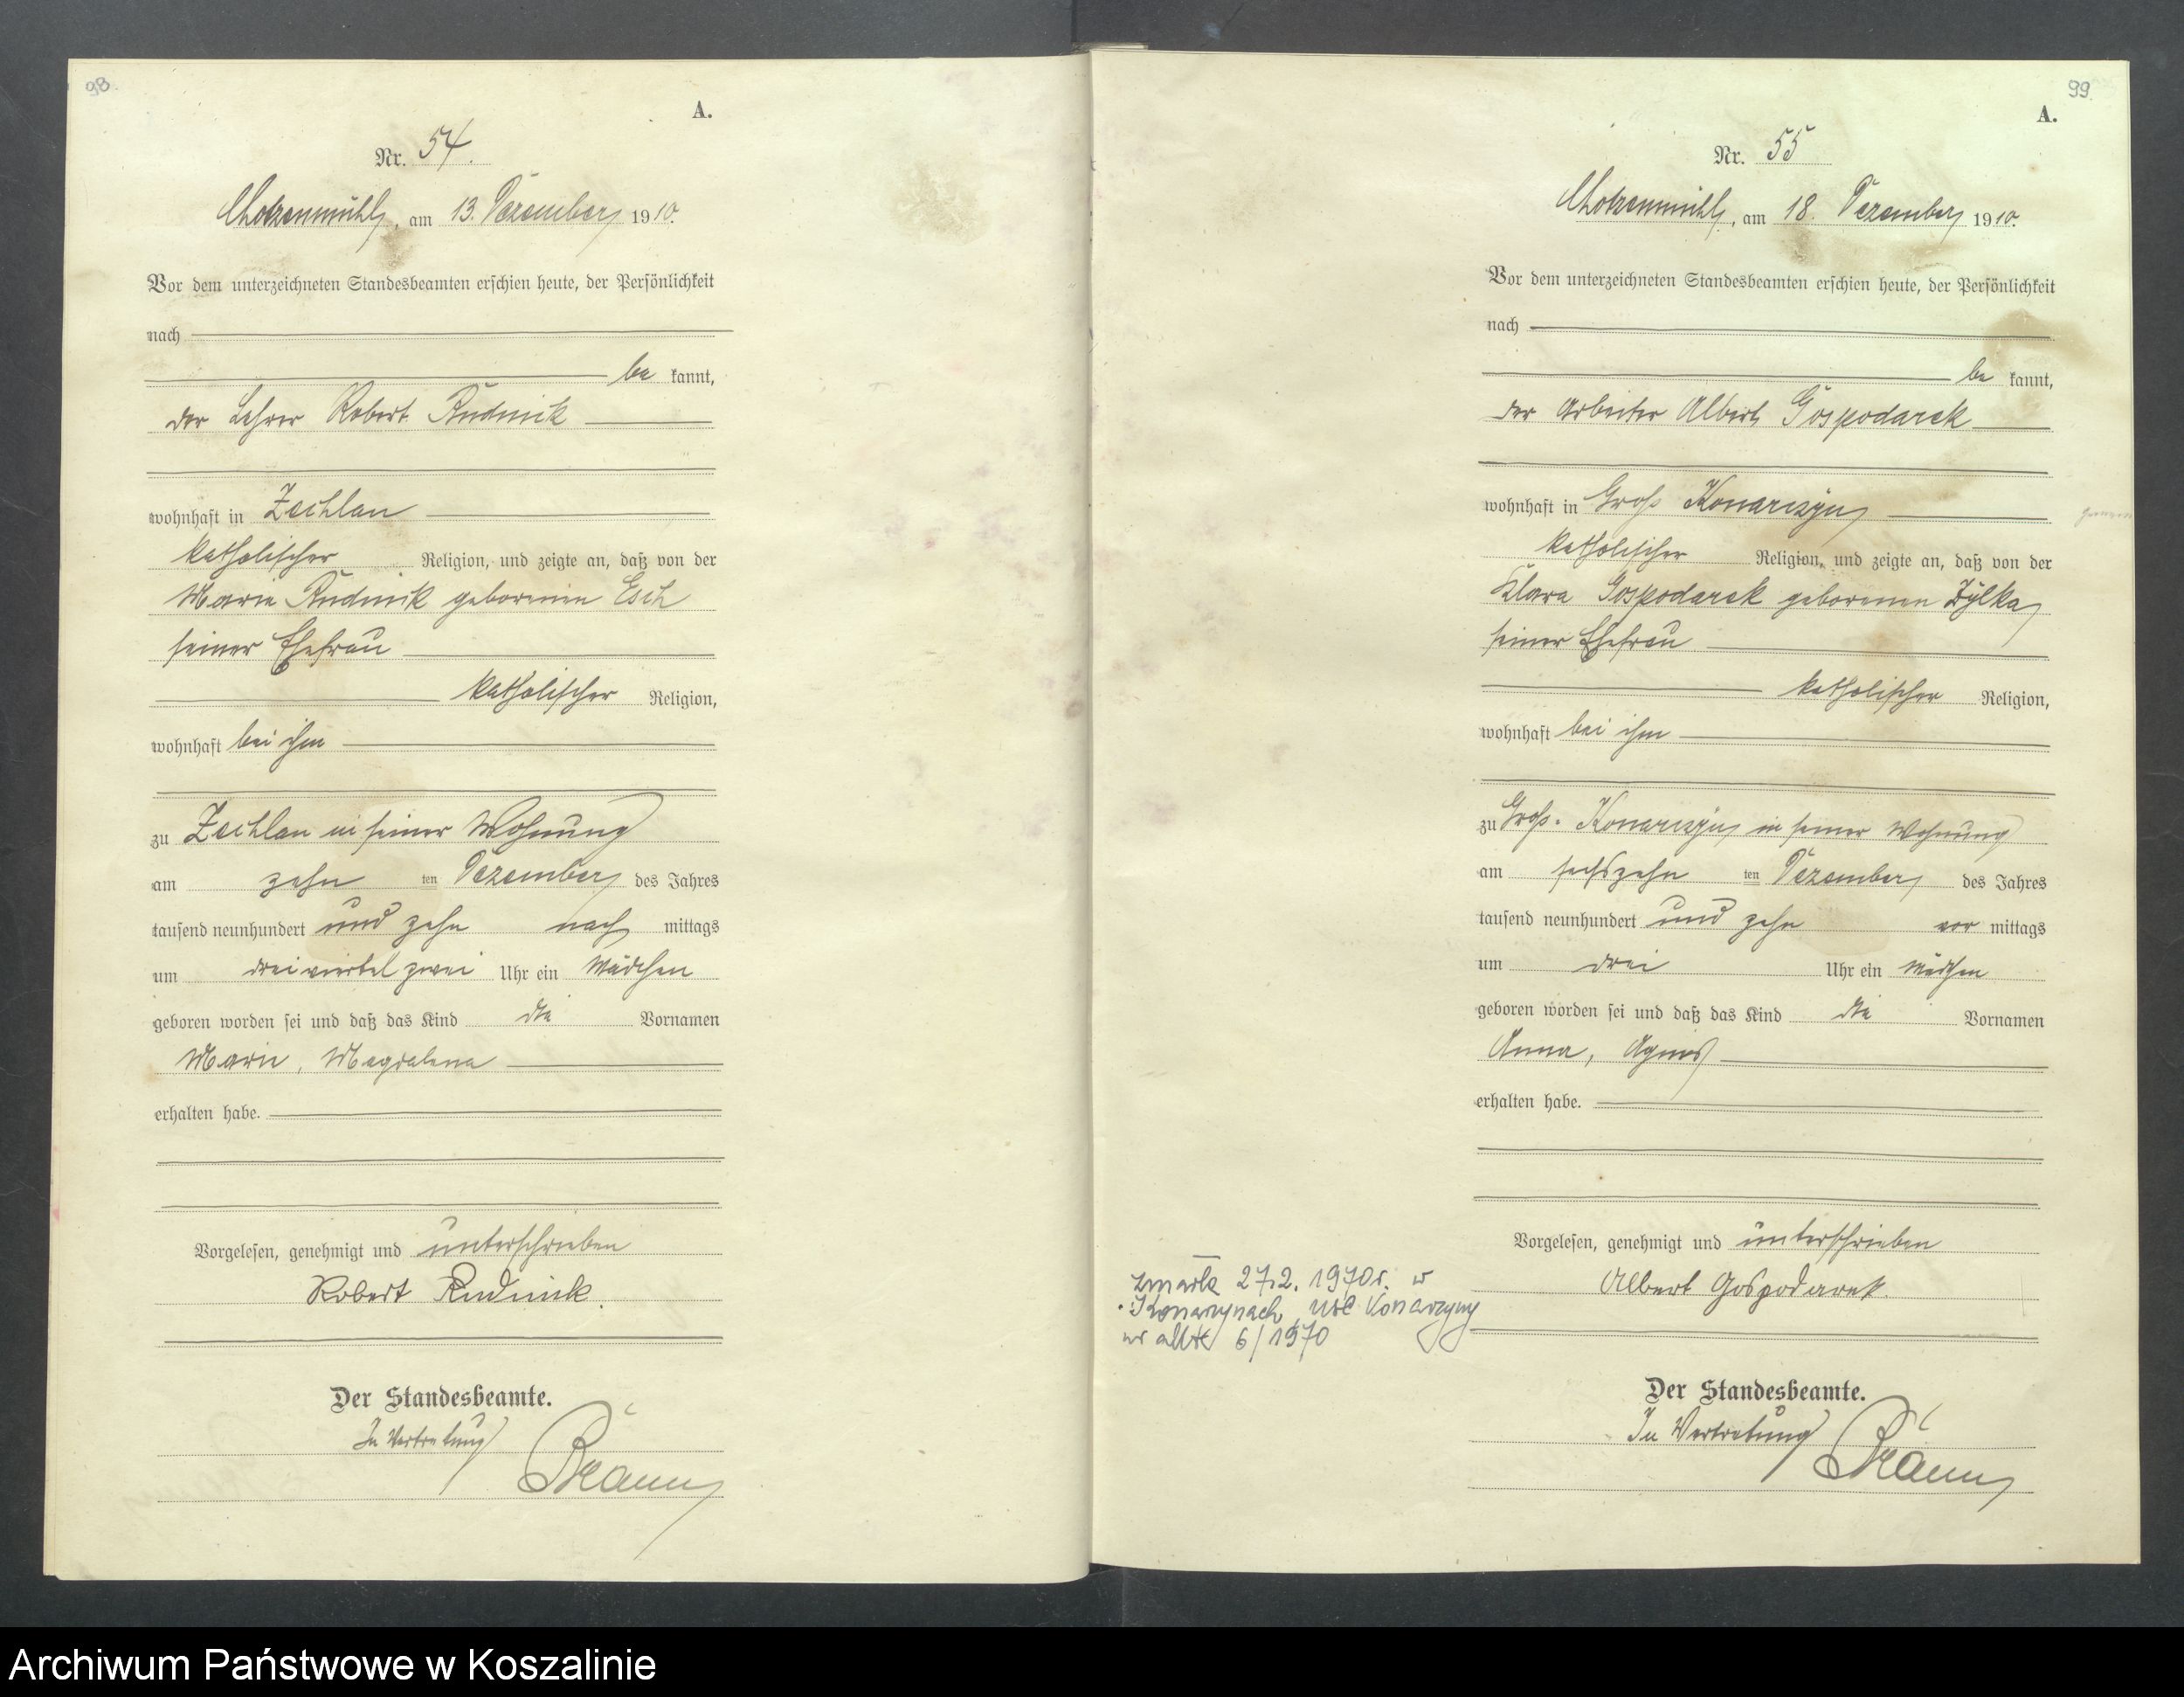 98.
A.
Nr. 54.
Chotzenmühl, am 13. Dezember 1910.
Vor dem unterzeichneten Standesbeamten erschien heute, der Persönlichkeit
nach
be kannt,
der Lehrer Robert Rudnik
wohnhaft in Zechlau
katholischer Religion, und zeigte an, daß von der
Marie Rudnik geborenen Esch
seiner Ehefrau
katholischer Religion,
wohnhaft bei ihm
zu Zechlau in seiner Wohnung
am zehn ten Dezember des Jahres
tausend neunhundert und zehn nach mittags
um dreiviertel zwei Uhr ein Mädchen
geboren worden sei und daß das Kind die Vornamen
Marie, Magdalena
erhalten habe.
Vorgelesen, genehmigt und unterschrieben
Robert Rudnik.
Der Standesbeamte.
In Vertretung
99.
A.
Nr. 55
Chotzenmühl, am 18. Dezember 1910.
Vor dem unterzeichneten Standesbeamten erschien heute, der Persönlichkeit
nach
be kannt,
der Arbeiter Albert Gospodarek
wohnhaft in Groß Konarczyn
katholischer Religion, und zeigte an, daß von der
Klara Gospodarek geborenen Zylka
seiner Ehefrau
katholischer Religion,
wohnhaft bei ihm
zu Groß-Konarczyn in seiner Wohnung
am sechszehn ten Dezember des Jahres
tausend neunhundert und zehn vor mittags
um drei Uhr ein Mädchen
geboren worden sei und daß das Kind die Vornamen
Anna, Agnes
erhalten habe.
Vorgelesen, genehmigt und unterschrieben
Albert Gospodarek
Der Standesbeamte.
In Vertretung
zmarła 27.2.1970r. w
Konarzynach USC Konarzyny
nr aktu 6/1970
Archiwum Państwowe w Koszalinie